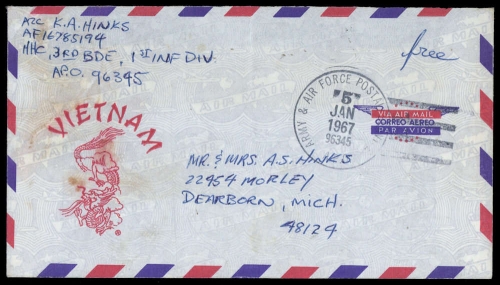 A2C K.A. HINKS
AF16785194
HHC, 3RD BDE, 1ST INF DIV.
A.P.O. 96345
free
ARMY & AIR FORCE POSTAL
5
JAN
1967
96345
VIA AIR MAIL
CORREO AEREO
PAR AVION
VIETNAM
®
MR. & MRS. A.S. HINKS
22954 MORLEY
DEARBORN, MICH.
48124